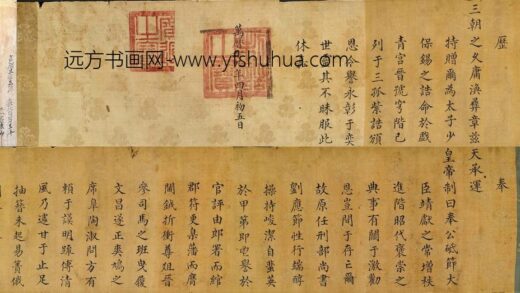 奉
天承運
皇帝制曰奉公砥節大
臣靖獻之常增秩
進階昭代褒崇之
典事有關于激勸
恩豈間于存亡爾
故原任刑部尚書
劉應節性行端醇
操持峻潔自蜚英
於甲第即
譽於
官評由郎署而綰
郡符更臬藩而膺
閫鉞折衝尊俎晉
參司馬之班曳履
文昌遂正爽鳩之
席阜陶淑問方有
賴于謨明疎傅清
風乃遽甘于止足
抽簪未起易簀俄
歷
三朝之久庸渙彝章茲
持贈爾為太子少
保錫之誥命於戲
青宮晉號穹階已
列于三孤紫誥頒
恩令譽永彰于奕
世
其不昧服此
休
萬曆
年四月初五日
远方书画网——www.yfshuhua.com